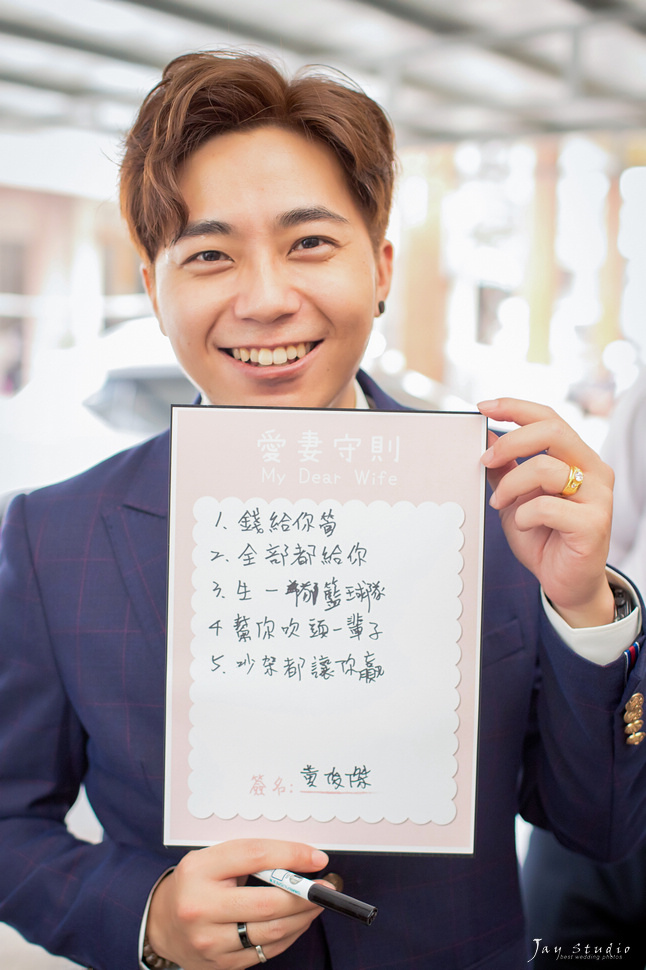 愛妻守則
My Dear Wife
1. 錢給你管
2. 全部都給你
3. 生一 籃球隊
4 幫你吹頭一輩子
5. 吵架都讓你贏
簽名: 黃俊傑
Jay Studio
best wedding photos